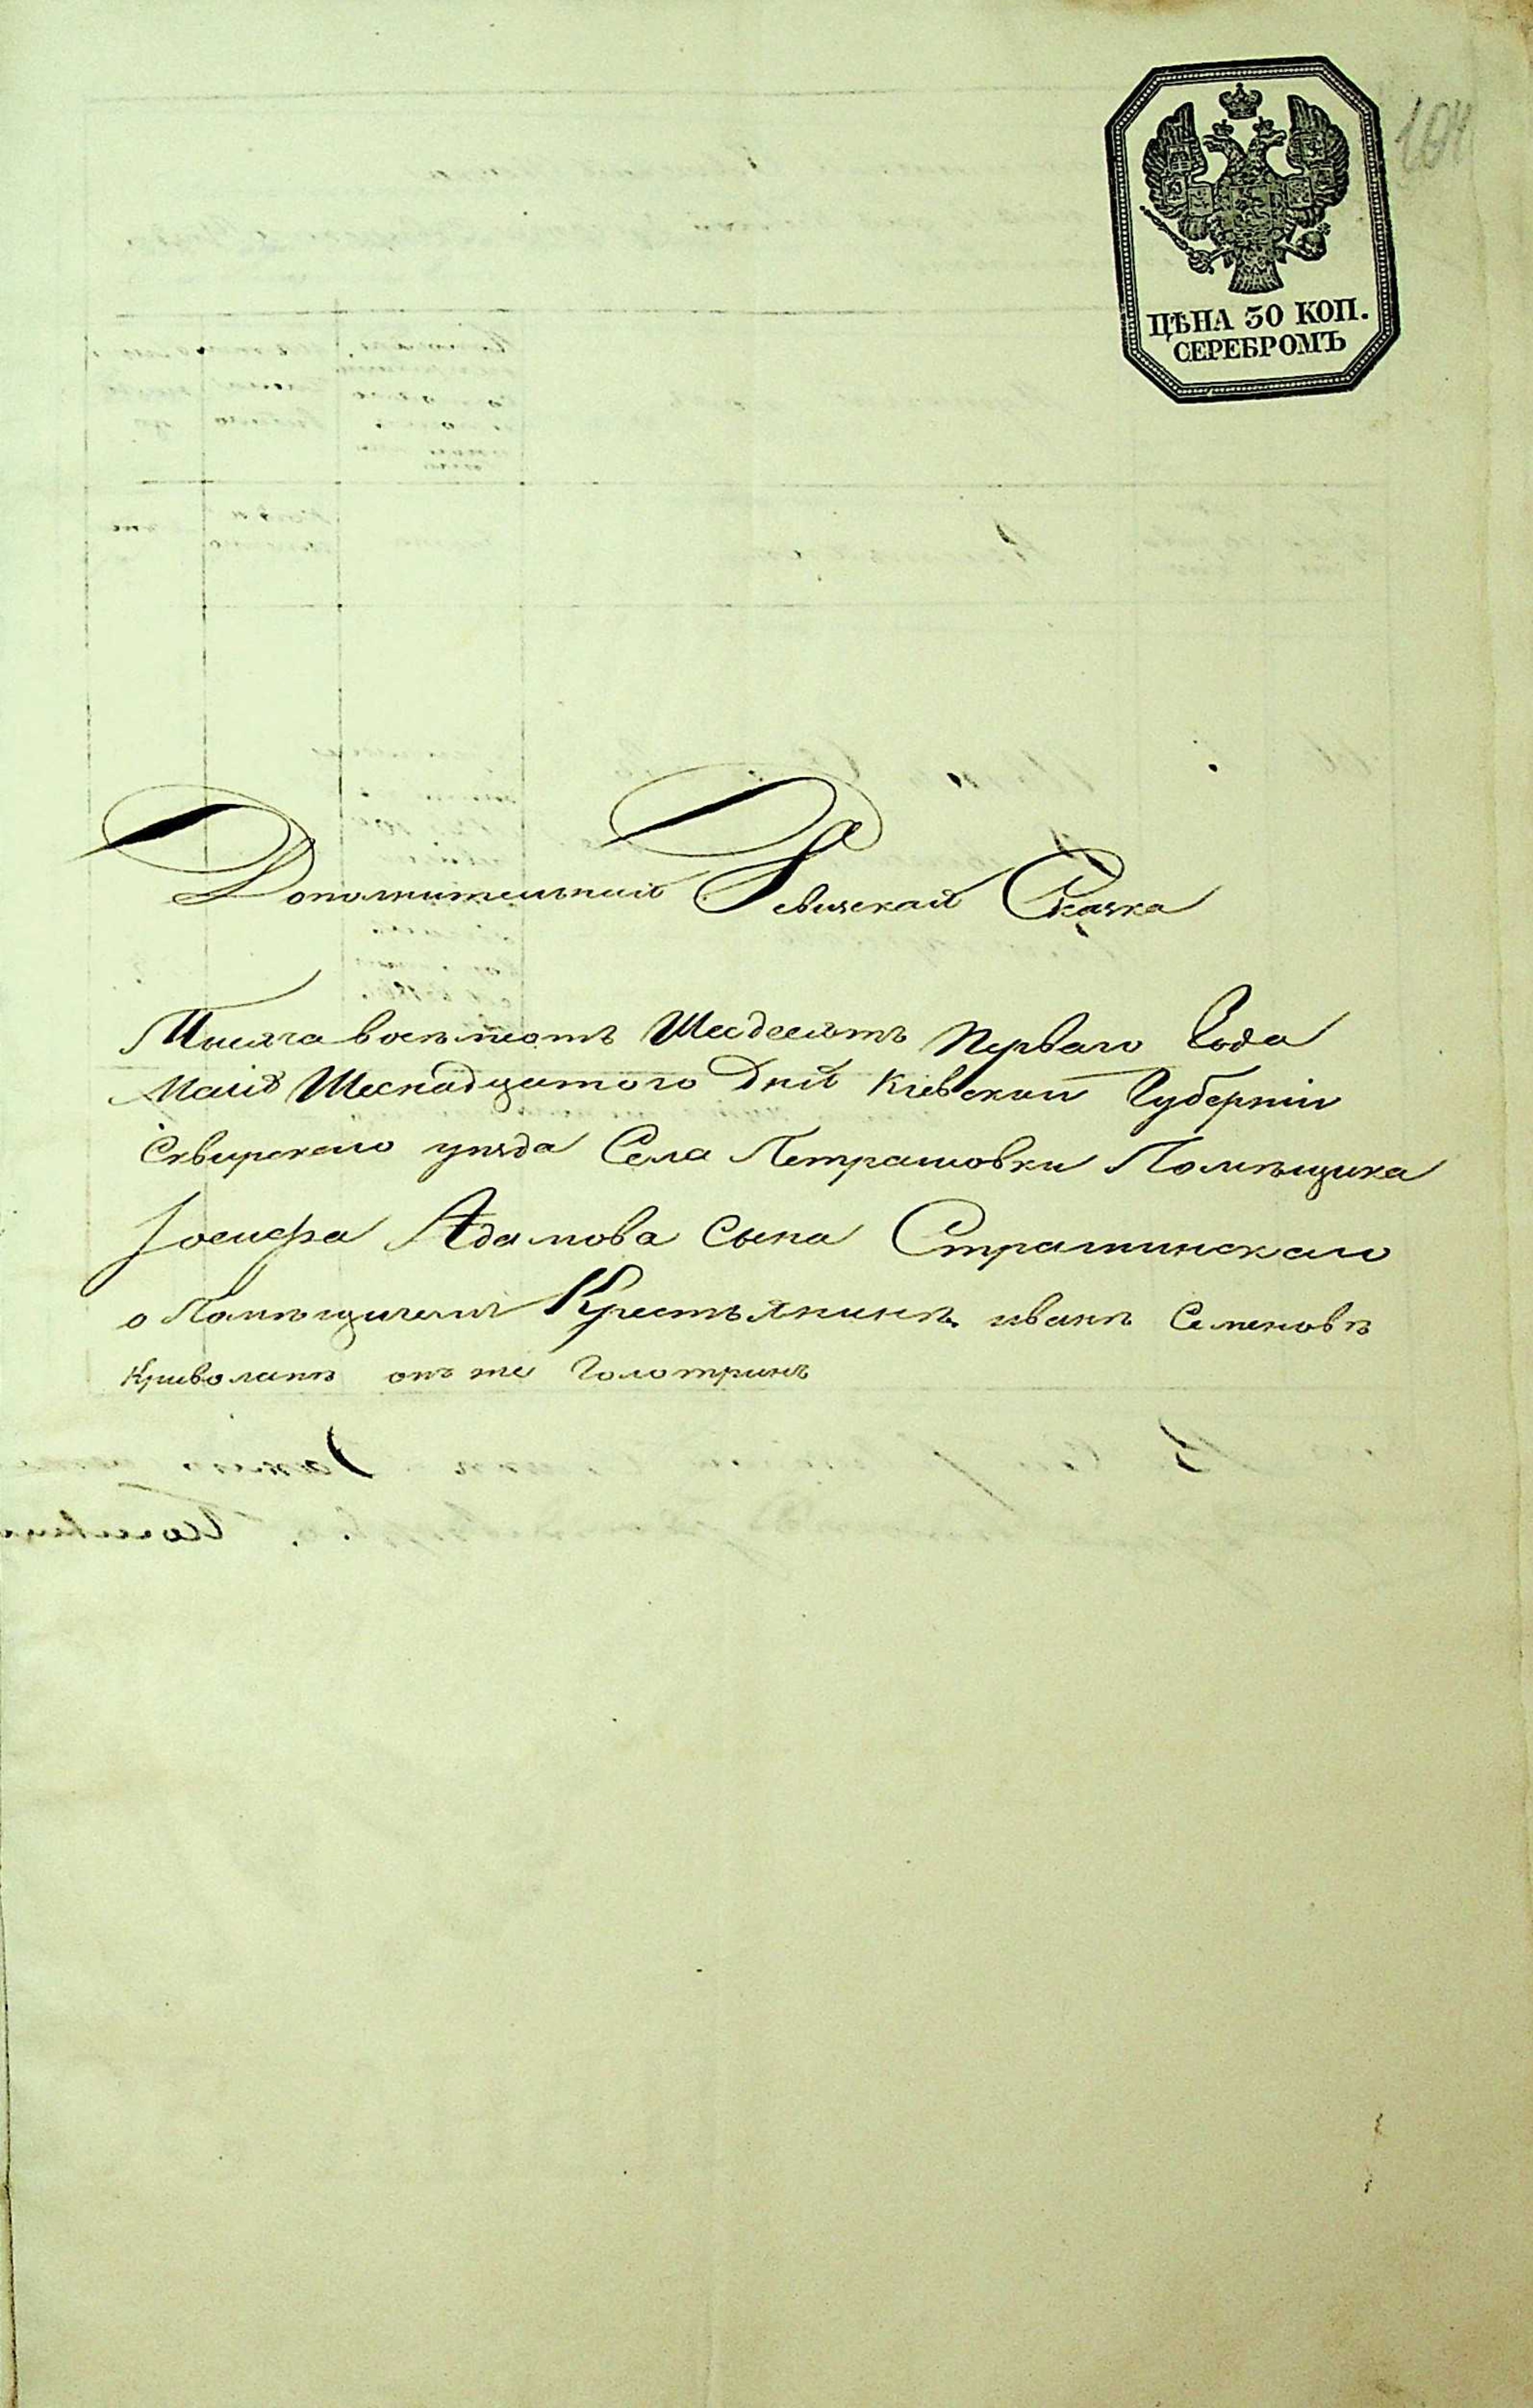 104
ЦѢНА 30 КОП.
СЕРЕБРОМЪ
Дополнительная Ревизская Сказка
Тысяча восѣмсотъ Шесдесятъ Перваго Года
Мая Шеснадцатого Дня Кіевской Губерніи
Сквирскаго уѣзда Села Петрашовки Помѣщика
Іосифа Адамова Сына Страшинскаго
о Помѣщичем Крестьянинѣ иванѣ Семеновѣ
Криволапѣ онъ же Голотринъ